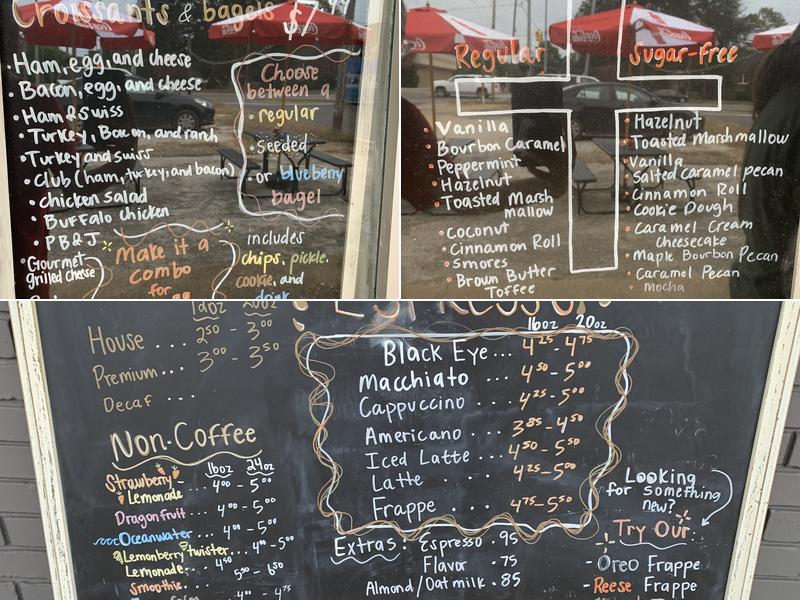 Croissants & bagels $7
• Ham, egg, and cheese
• Bacon, egg, and cheese
• Ham & Swiss
• Turkey, Bacon, and ranch
• Turkey and swiss
• Club (ham, turkey, and bacon)
• chicken salad
• Buffalo chicken
• PB&J
• Gourmet
grilled cheese
Choose
between a
• regular
• seeded
• or blueberry
bagel
Make it a
combo
for
includes
chips, pickle,
cookie, and
drink
Regular
• Vanilla
• Bourbon Caramel
• Peppermint
• Hazelnut
• Toasted Marsh
mallow
• coconut
• Cinnamon Roll
• Smores
• Brown Butter
Toffee
Sugar-free
• Hazelnut
• Toasted Marshmallow
• Vanilla
• Salted caramel pecan
• Cinnamon Roll
• Cookie Dough
• Caramel Cream
Cheesecake
• Maple Bourbon Pecan
• Caramel Pecan
• Mocha
12oz 20oz
House ... 2.50 - 3.00
Premium... 3.00 - 3.50
Decaf ....
Non-Coffee
16oz 24oz
Strawberry
Lemonade ... 4.00 - 5.00
Dragonfruit ... 4.00 - 5.00
Oceanwater ... 4.00 - 5.00
Lemonberry twister ... 4.00 - 5.00
Lemonade... 4.50
Smoothie... 5.00 - 6.50
4.00 - 4.75
ESPRESSO
16oz 20oz
Black Eye... 4.25 - 4.75
Macchiato ... 4.50 - 5.00
Cappuccino ... 4.25 - 5.00
Americano ... 3.85 - 4.50
Iced Latte... 4.50 - 5.50
Latte ... 4.25 - 5.00
Frappe ... 4.75 - 5.50
Extras: Espresso .95
Flavor .75
Almond/Oat milk .85
Looking
for something
new?
Try Our
- Oreo Frappe
- Reese Frappe